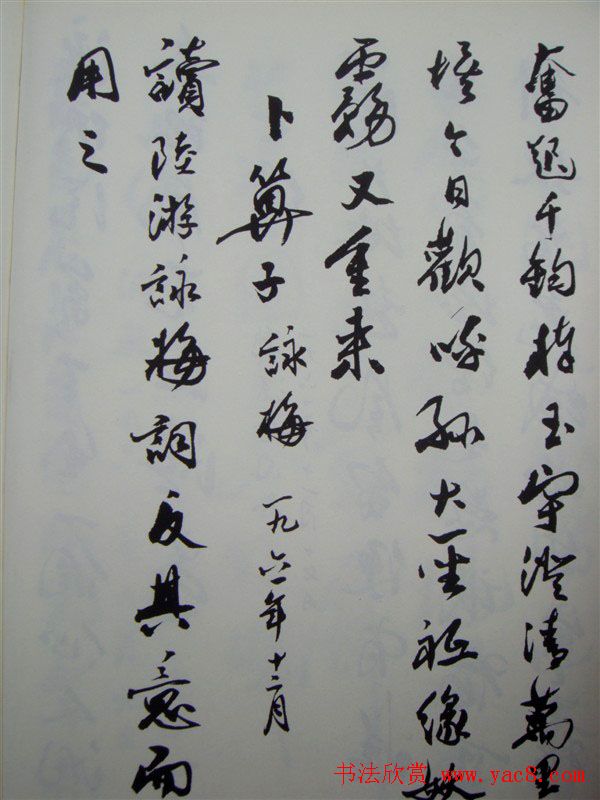 奮起千鈞棒玉宇澄清萬里
埃今日歡呼孫大聖祗緣妖
霧又重来
卜算子 詠梅 一九六一年十二月
讀陸游詠梅詞反其意而
用之
书法欣赏 www.yac8.com